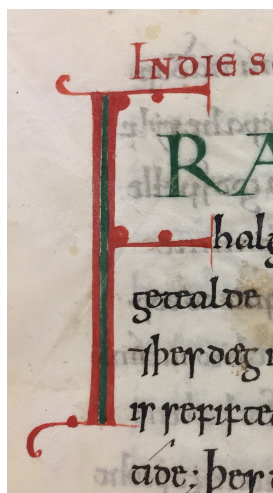 IN DIE S
FRA
halg
getealde
ꞅþeꞅ dæg
iꞅ ꞅe fifte
tide; þeꞅ